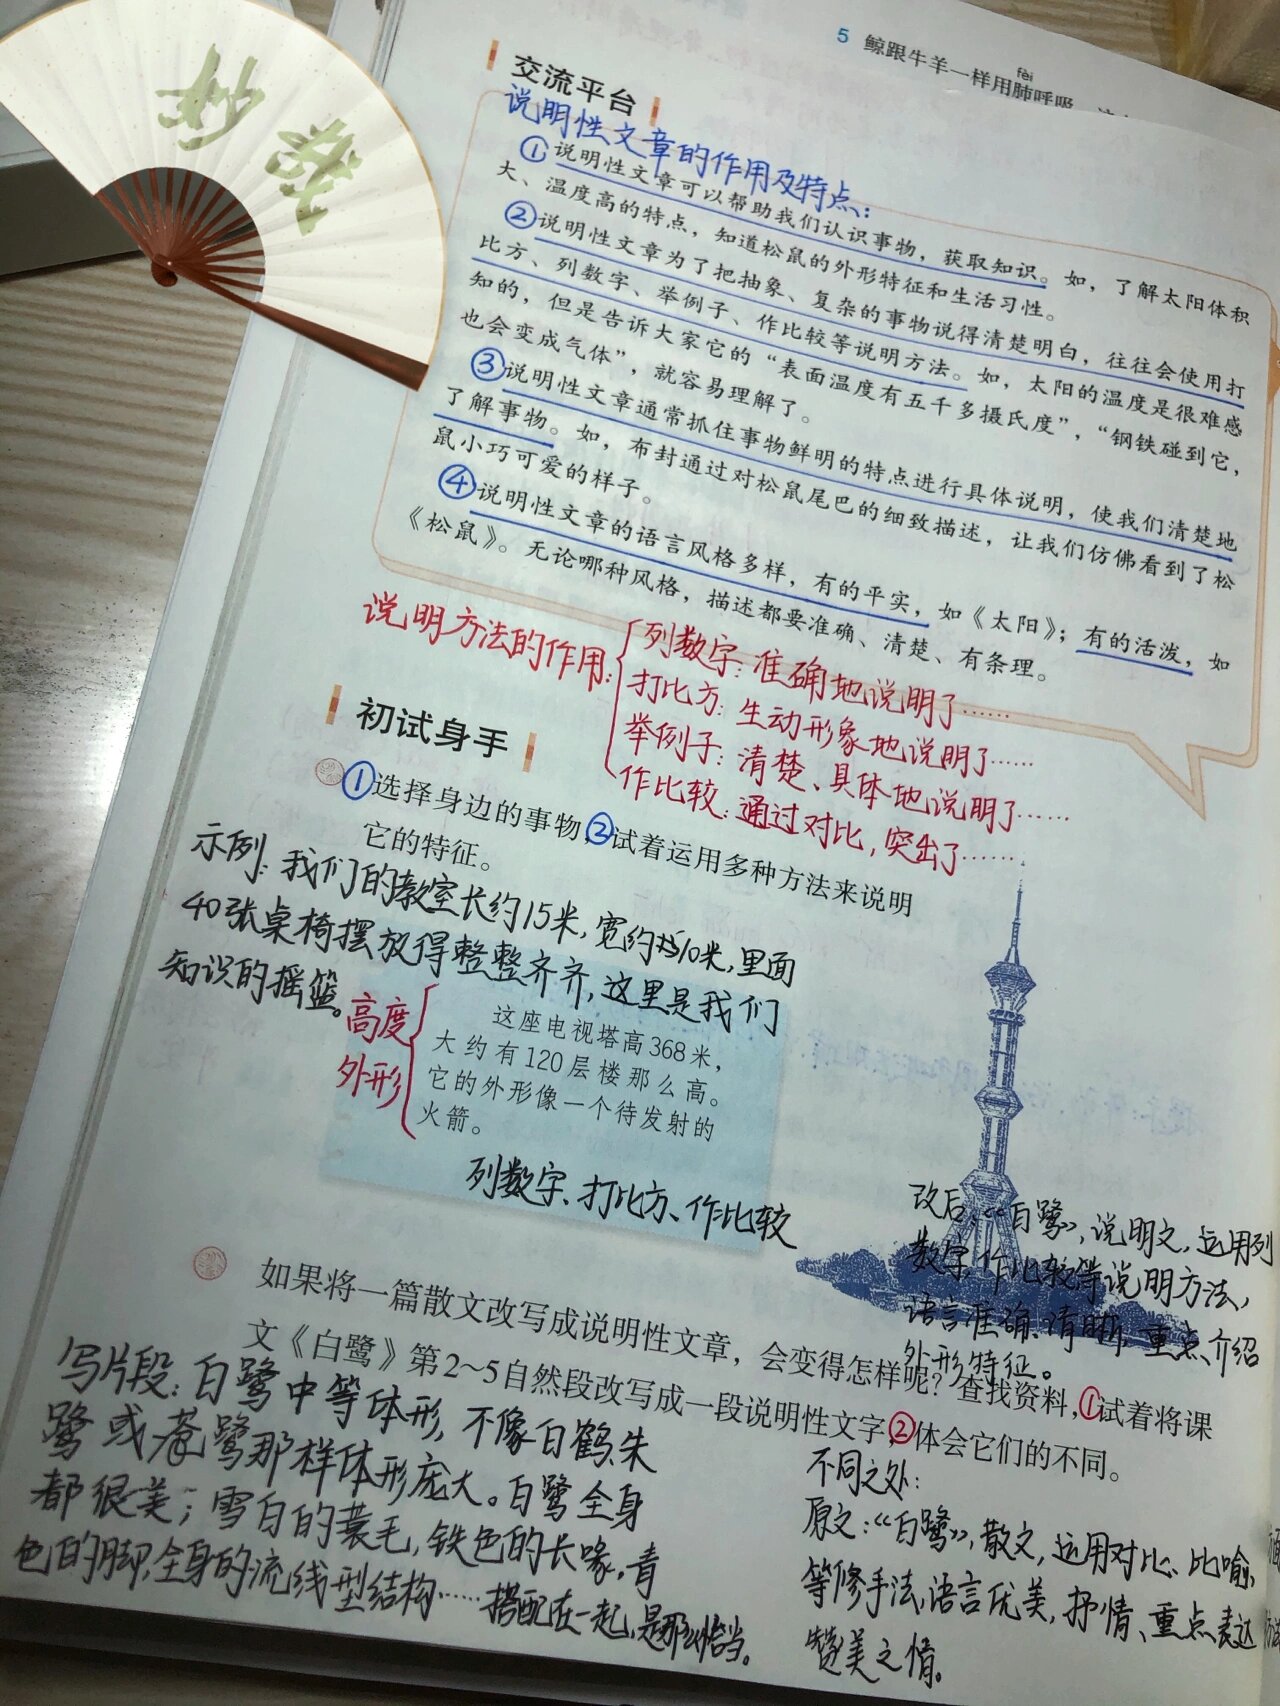 妙哉
5 鲸跟牛羊一样用肺呼吸
fèi
交流平台
说明性文章的作用及特点：
①说明性文章可以帮助我们认识事物，获取知识。如，了解太阳体积
大、温度高的特点，知道松鼠的外形特征和生活习性。
②说明性文章为了把抽象、复杂的事物说得清楚明白，往往会使用打
比方、列数字、举例子、作比较等说明方法。如，太阳的温度是很难感
知的，但是告诉大家它的“表面温度有五千多摄氏度”，“钢铁碰到它，
也会变成气体”，就容易理解了。
③说明性文章通常抓住事物鲜明的特点进行具体说明，使我们清楚地
了解事物。如，布封通过对松鼠尾巴的细致描述，让我们仿佛看到了松
鼠小巧可爱的样子。
④说明性文章的语言风格多样，有的平实，如《太阳》；有的活泼，如
《松鼠》。无论哪种风格，描述都要准确、清楚、有条理。
说明方法的作用：
列数字：准确地说明了……
打比方：生动形象地说明了……
举例子：清楚、具体地说明了……
作比较：通过对比，突出了……
初试身手
①选择身边的事物，②试着运用多种方法来说明
它的特征。
示例：我们的教室长约15米，宽约10米，里面
40张桌椅摆放得整整齐齐，这里是我们
知识的摇篮。
高度
外形
这座电视塔高368米，
大约有120层楼那么高。
它的外形像一个待发射的
火箭。
列数字、打比方、作比较
改后：《白鹭》，说明文，运用列
数字、作比较等说明方法，
语言准确、清晰，重点介绍
外形特征。
如果将一篇散文改写成说明性文章，会变得怎样呢？查找资料，①试着将课
文《白鹭》第2~5自然段改写成一段说明性文字，②体会它们的不同。
写片段：白鹭中等体形，不像白鹤、朱
鹭或苍鹭那样体形庞大。白鹭全身
都很美；雪白的蓑毛，铁色的长喙，青
色的脚，全身的流线型结构……搭配在一起，是那么恰当。
不同之处：
原文：《白鹭》，散文，运用对比、比喻
等修手法，语言优美，抒情、重点表达
赞美之情。